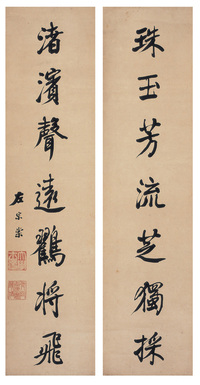 珠玉芳流芝獨採
渚濱聲遠鸛将飛
左宗棠